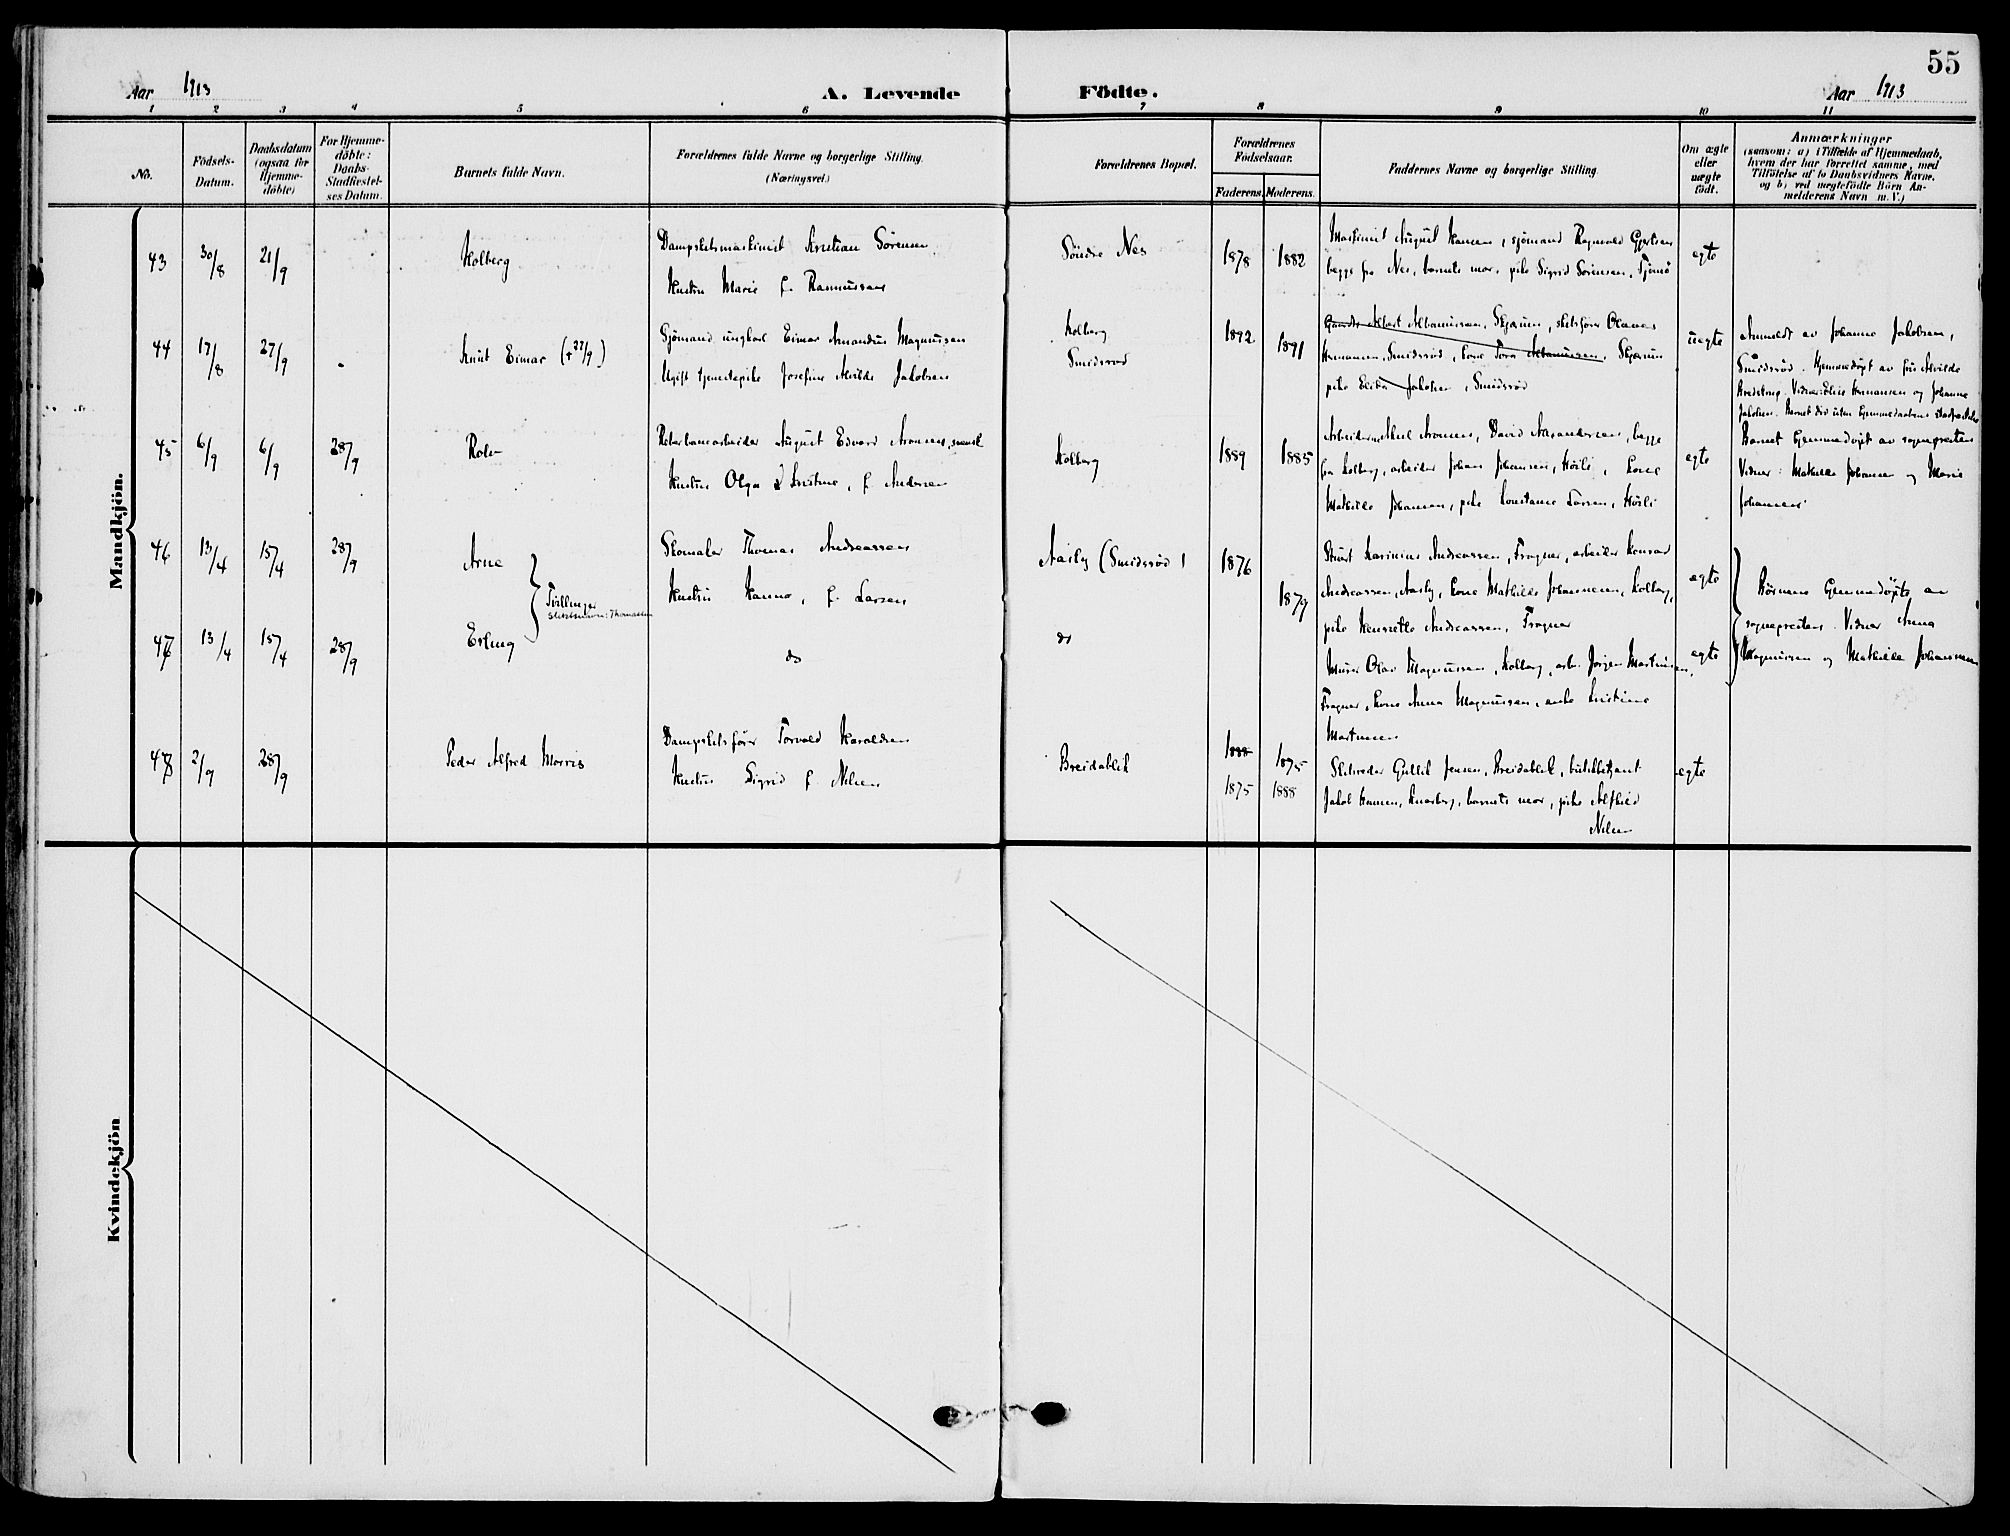 55
Aar 1913 A. Levende Födte. Aar 1913
1 2 3 4 5 6 7 8 9 10 11
No.
Födsels-
Datum.
Daabsdatum
(ogsaa for
Hjemme-
döbte)
For Hjemme-
döbte:
Daabs-
Stadfæstel-
ses Datum.
Barnets fulde Navn.
Forældrenes fulde Navne og borgerlige Stilling.
(Næringsvei.)
Forældrenes Bopæl.
Forældrenes
Födselsaar.
Faderens. Moderens.
Faddernes Navne og borgerlige Stilling.
Om ægte
eller
uægte
födt.
Anmærkninger
(saasom: a) i Tilfælde af Hjemmedaab,
hvem der har forrettet samme, med
Tilföielse af to Daabsvidners Navne,
og b) ved uægtefödte Börn An-
melderens Navn m. V.)
Mandkjön.
43 30/8 21/9 Kolberg
Dampskibsmaskinist Kristian Sörensen
Hustru Marie f. Rasmussen
Söndre Nes
1878 1882
Maskinist August Hansen, sjömand Ragnvald Gjertsen
begge fra Nes, barnets mor, pike Sigrid Sörensen, Tjömö
egte
44 17/8 27/9 Knut Eimar (+ 27/9)
Sjömand ungkarl Eimar Amandus Magnussen
Ugift tjenestepike Josefine Alvilde Jakobsen
Kolberg
Smidsröd
1892 1891
Albert Skjærum, skibsförer
Hermansen, Smidsröd, kone Skjærum
pike Jakobsen, Smidsröd
uegte
Anmeldt av Johanne Jakobsen,
Smidsröd. Hjemmedöpt av fru Alvilde
Vidner: Hermansen og Johanne
Jakobsen.
45 6/9 6/9 28/9 Rolv
August Edvard Aronsen, svensk
Hustru Olga Kristine, f. Andersen
Kolberg
1889 1885
Arbeiderne Axel Aronsen, David Alexandersen, begge
fra Kolberg, arbeider Johan Johansen, kone
Mathilde Johansen, pike Konstanse Larsen,
egte
Barnet hjemmedöpt av sognepresten
Vidner: Mathilde Johansen og Marie
Johansen
46 13/4 15/4 28/9 Arne
Tvillinger
Slektsnavn: Thomassen
Skomaker Thomas Andreassen
Hustru Hanna, f. Larsen
Aasly (Smidsröd)
1876 1879
Andreassen, Fragner, arbeider Konrad
Andreassen, Aasly, kone Mathilde Johannesen, Kolberg,
pike Henriette Andreassen, Fragner
egte
Börnene hjemmedöpte av
sognepresten. Vidner Anna
Magnussen og Mathilde Johannesen
47 13/4 15/4 28/9 Erling
do
do
Murer Olav Magnussen, Kolberg, arb. Jörgen Martinsen,
Fragner, kone Anna Magnussen, enke Kristine
Martinsen
egte
48 2/9 28/9 Peder Alfred Morris
Dampskibsförer Torvald Haraldsen
Hustru Sigrid f. Nilsen
Breidablik
1888 1875
1875 1888
Skibsreder Gullik Jensen, Breidablik, butikbetjent
Jakob Hansen, Knarberg, barnets mor, pike Alfhild
Nilsen
egte
Kvindekjön